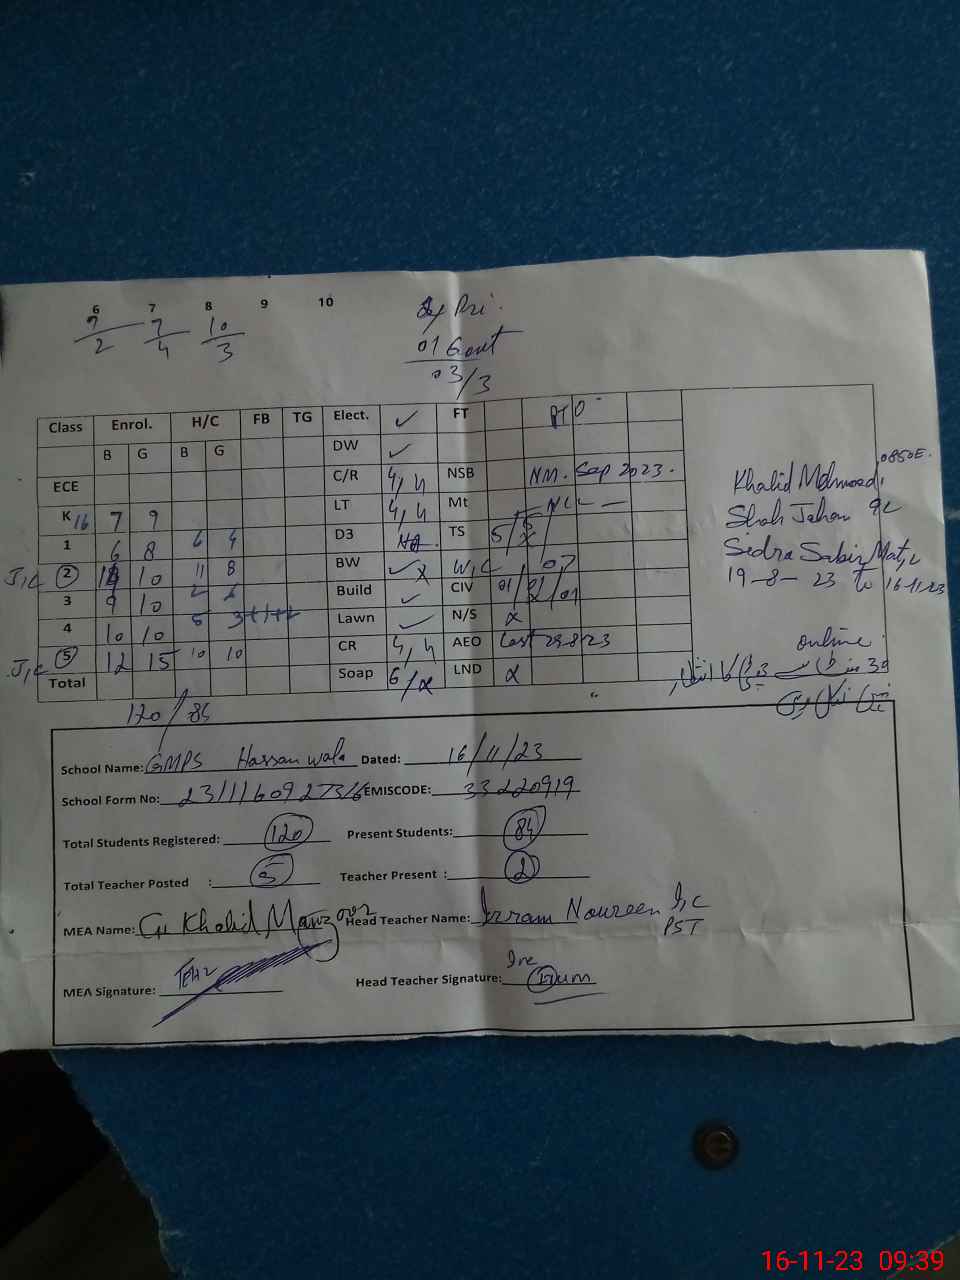 6 7 8 9 10
7/2 7/4 10/3
Pri.
01 Govt
03/3
Class Enrol. H/C FB TG Elect. ✓ FT PTO
B G B G DW ✓
ECE C/R 4, 4 NSB NM. Sep 2023.
K 16 7 9 LT 4, 4 Mt NLL —
1 6 8 6 4 D3 TS 5/5/
J,C 2 10 11 8 BW ✓ x W,C 07
3 9 10 Build ✓ CIV 01/01/01
4 10 10 5 3+1+2 Lawn ✓ N/S x
J,C 5 12 15 10 10 CR 4, 4 AEO Last 29-8-23
Total Soap 6/x LND x
120/84
Khalid Mehmood,
Shah Jahan
Sidra Sabir Mat,L
19-8-23 to 16-11-23
online
School Name: GMPS Hassan wala Dated: 16/11/23
School Form No: 231116092736 EMISCODE: 33220919
Total Students Registered: 120 Present Students: 84
Total Teacher Posted : 5 Teacher Present : 2
MEA Name: Khalid Head Teacher Name: Irram Noureen I,C
PST
MEA Signature: Head Teacher Signature:
16-11-23 09:39